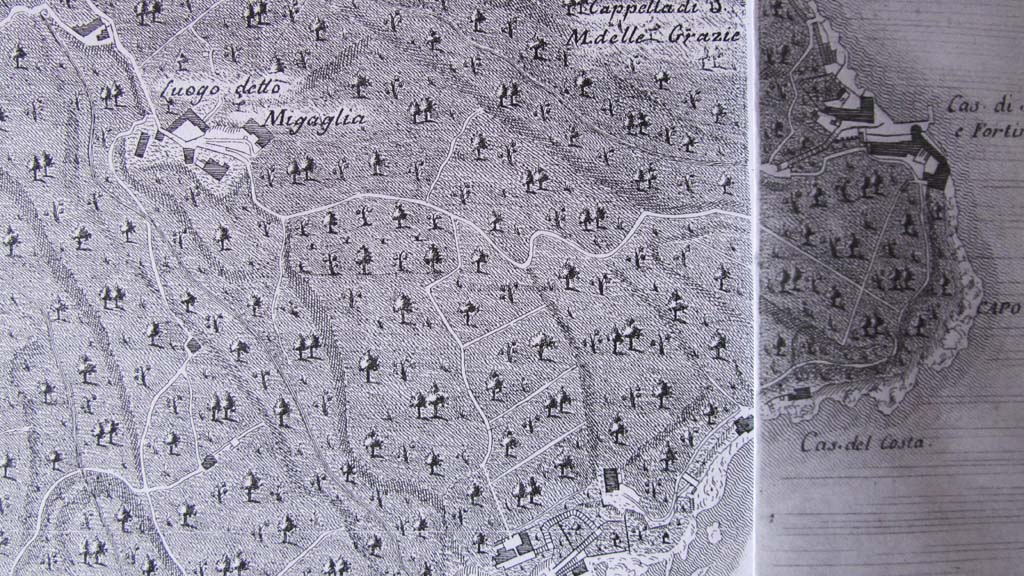 Cappella di S.
M. delle Grazie
Luogo detto
Migaglia
Cas. di
e Forti
CAPO
Cas. del Costa.